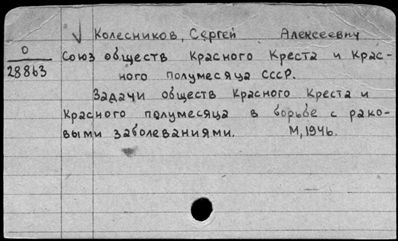 Колесников, Сергей Алексеевич
О
28863
Союз обществ Красного Креста и Крас-
ного полумесяца СССР.
Задачи обществ Красного Креста и
Красного полумесяца в борьбе с рако-
выми заболеваниями. М, 1946.